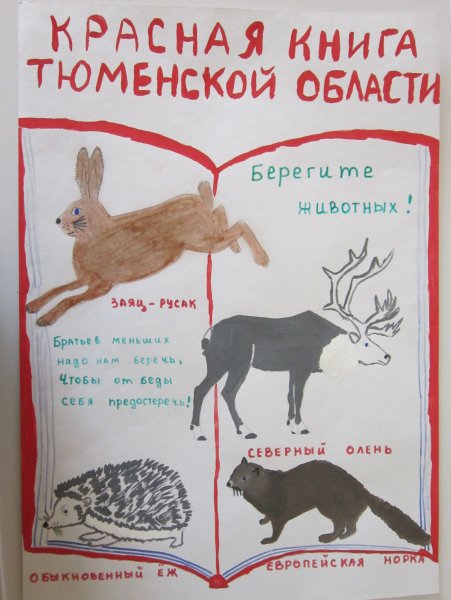 КРАСНАЯ КНИГА
ТЮМЕНСКОЙ ОБЛАСТИ
Берегите
животных!
ЗАЯЦ-РУСАК
Братьев меньших
надо нам беречь,
Чтобы от беды
себя предостеречь!
СЕВЕРНЫЙ ОЛЕНЬ
ОБЫКНОВЕННЫЙ ЁЖ
ЕВРОПЕЙСКАЯ НОРКА